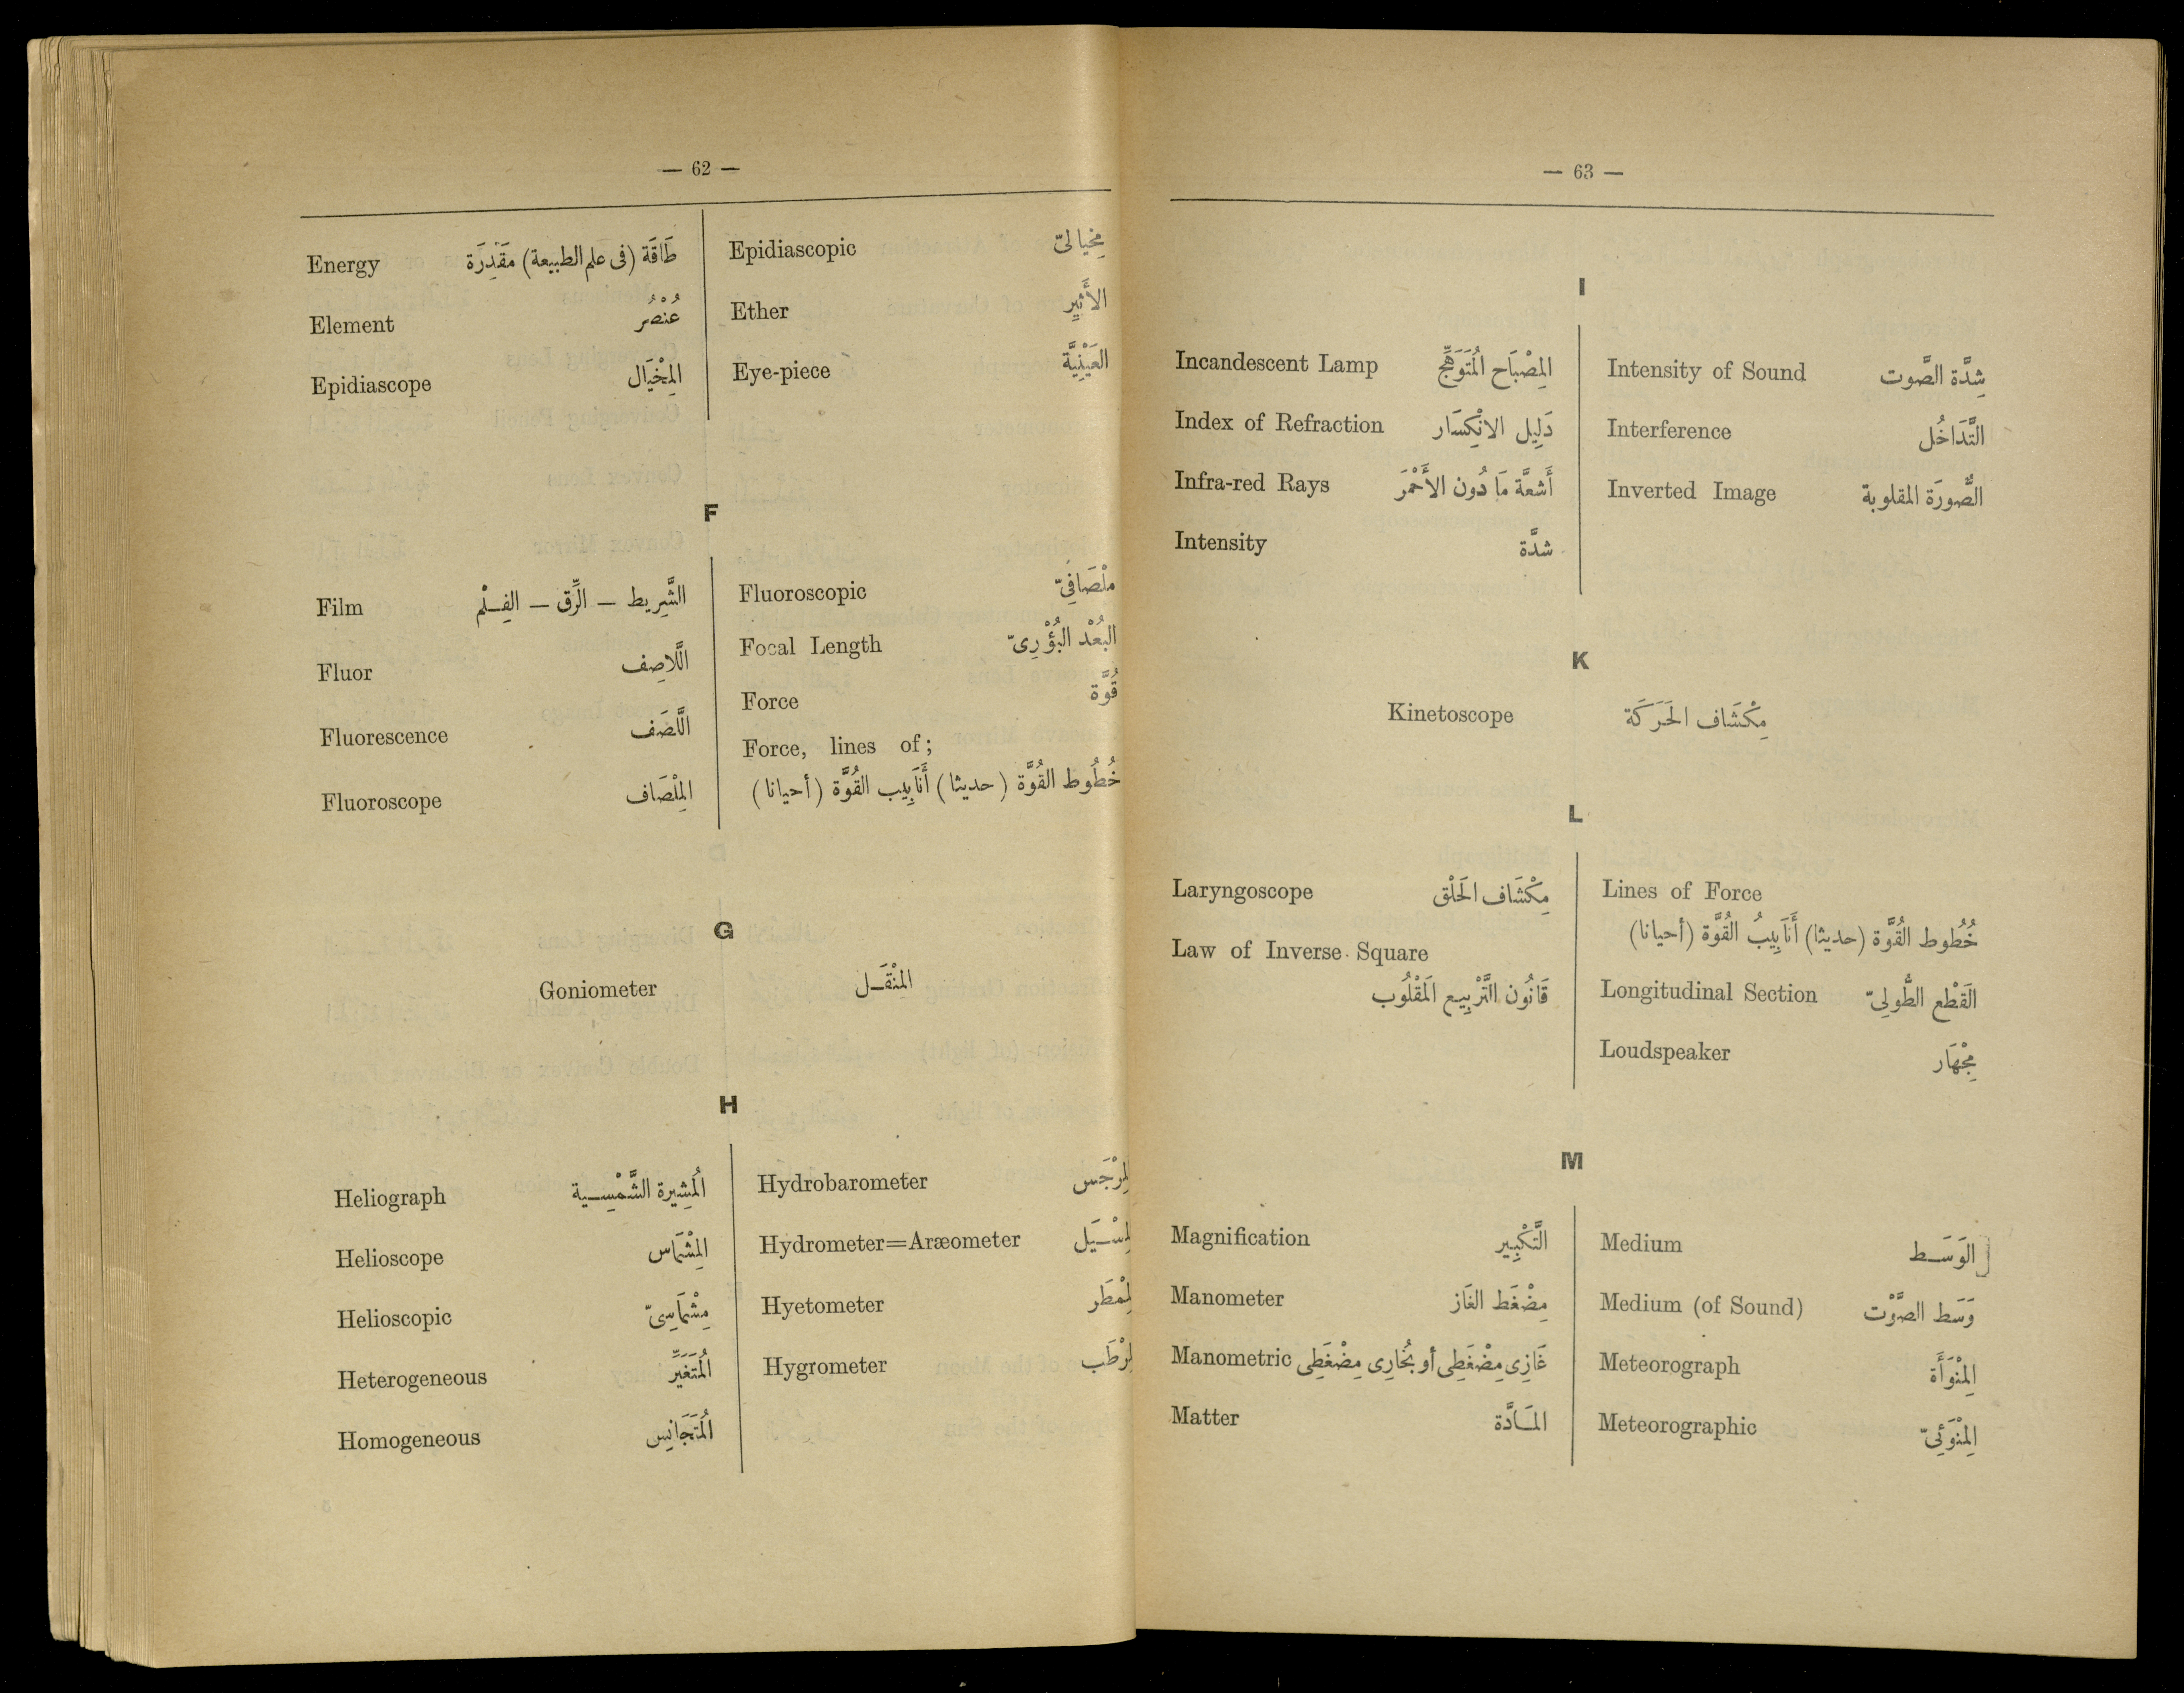 — 62 —
Energy طَاقَة (فى علم الطبيعة) مَقْدِرَة
Element عُنْصُر
Epidiascope المِخْيَال
Epidiascopic مِخْيالىّ
Ether الأَثِير
Eye-piece العَيْنِيَّة
F
Film الشَّرِيط — الرِّق — الفِلْم
Fluor اللَّاصِف
Fluorescence اللَّصَف
Fluoroscope المِلْصَاف
Fluoroscopic ملْصَافِىّ
Focal Length البُعْد البُؤْرِىّ
Force قُوَّة
Force, lines of;
خُطُوط القُوَّة (حديثا) أَنَابِيب القُوَّة (أحيانا)
G
Goniometer المِنْقَل
H
Heliograph المُشِيرة الشَّمْسِية
Helioscope المِشْمَاس
Helioscopic مِشْمَاسِىّ
Heterogeneous المُتَغَيِّر
Homogeneous المُتَجَانِس
Hydrobarometer المِرْجَس
Hydrometer=Aræometer المِسْيَل
Hyetometer المِمْطَر
Hygrometer المِرْطَب
— 63 —
I
Incandescent Lamp المِصْبَاح المُتَوَهِّج
Index of Refraction دَلِيل الانْكِسَار
Infra-red Rays أَشعَّة مَا دُون الأَحْمَر
Intensity شدَّة
Intensity of Sound شِدَّة الصَّوت
Interference التَّدَاخُل
Inverted Image الصُّورَة المقلوبة
K
Kinetoscope مِكْشَاف الحَرَكَة
L
Laryngoscope مِكْشَاف الحَلْق
Law of Inverse Square
قَانُون التَّرْبِيع المَقْلُوب
Lines of Force
خُطُوط القُوَّة (حديثا) أَنَابِيبُ القُوَّة (أحيانا)
Longitudinal Section القَطْع الطُّولِىّ
Loudspeaker مِجْهَار
M
Magnification التَّكْبِير
Manometer مِضْغَط الغَاز
Manometric غَازِى مِضْغَطِى أو بُخَارِى مِضْغَطِى
Matter المَادَّة
Medium الوَسَط
Medium (of Sound) وَسَط الصَّوْت
Meteorograph المِنْوَأَة
Meteorographic المِنْوَئِىّ